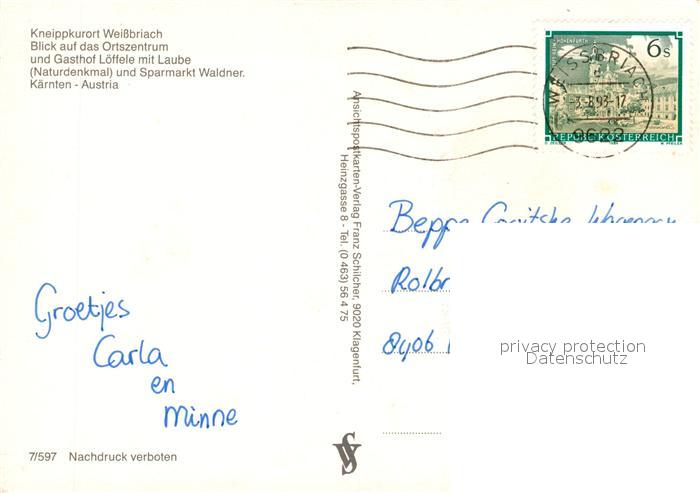 Kneippkurort Weißbriach
Blick auf das Ortszentrum
und Gasthof Löffele mit Laube
(Naturdenkmal) und Sparmarkt Waldner.
Kärnten - Austria
6s
WEISSBRIACH
REPUBLIK ÖSTERREICH
Ansichtspostkarten-Verlag Franz Schilcher, 9020 Klagenfurt,
Heinzgasse 8 - Tel. (0 463) 56 4 75
Groetjes
Carla
en
Minne
8406
privacy protection
Datenschutz
7/597 Nachdruck verboten